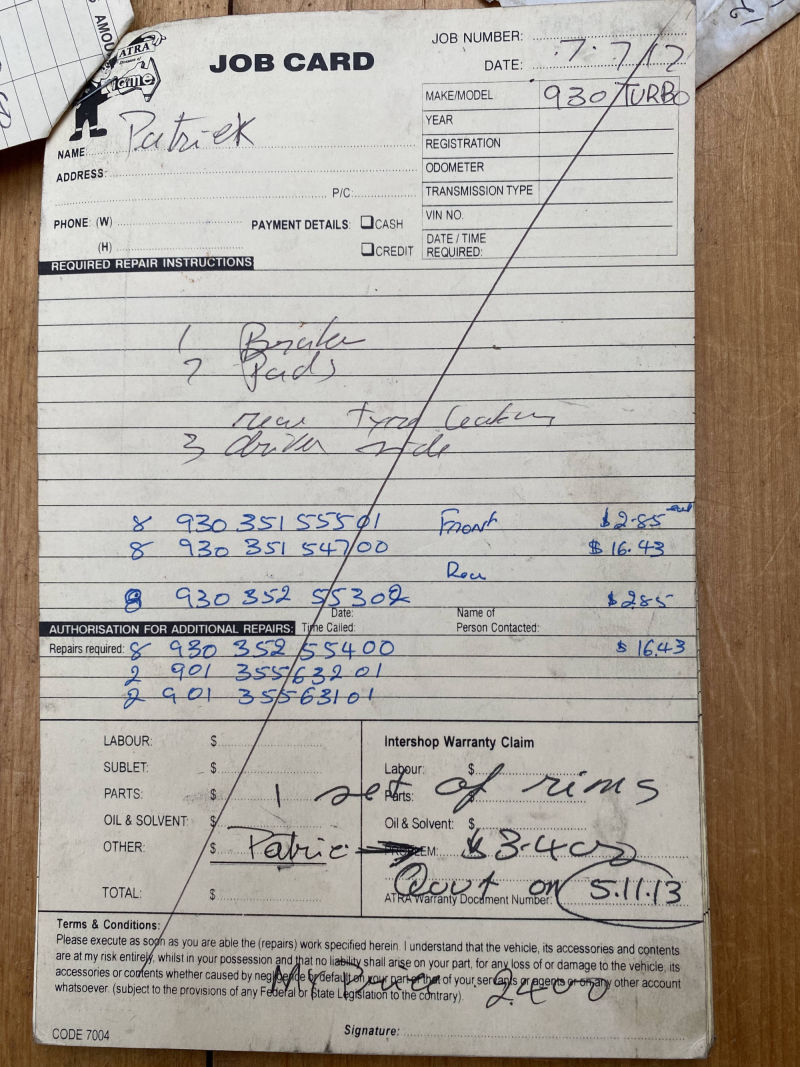 AMOU
ATRA
JOB CARD
JOB NUMBER:
DATE: 7.7.12
MAKE/MODEL 930 TURBO
YEAR
REGISTRATION
ODOMETER
TRANSMISSION TYPE
VIN NO.
DATE / TIME
REQUIRED:
NAME: Patrick
ADDRESS:
P/C:
PHONE: (W) PAYMENT DETAILS: CASH
(H) CREDIT
REQUIRED REPAIR INSTRUCTIONS
1 Brake
2 Pads
rear tyre leaking
3 driver side
8 930 351 55501 Front $2.85
8 930 351 54700 $16.43
Rear
8 930 352 55302 $2.85
Date: Name of
AUTHORISATION FOR ADDITIONAL REPAIRS: Time Called: Person Contacted:
Repairs required: 8 930 352 55400 $16.43
2 901 35563201
2 901 35563101
LABOUR: $
SUBLET: $
PARTS: $
OIL & SOLVENT: $
OTHER: $
TOTAL: $
Intershop Warranty Claim
Labour: $
Parts:
1 set of rims
Oil & Solvent: $
Patric → $3.400
Qout on 5.11.13
ATRA Warranty Document Number:
Terms & Conditions:
Please execute as soon as you are able the (repairs) work specified herein. I understand that the vehicle, its accessories and contents
are at my risk entirely, whilst in your possession and that no liability shall arise on your part, for any loss of or damage to the vehicle, its
accessories or contents whether caused by negligence or default on your part or that of your servants or agents or on any other account
whatsoever. (subject to the provisions of any Federal or State Legislation to the contrary).
My Price 2400
CODE 7004
Signature: